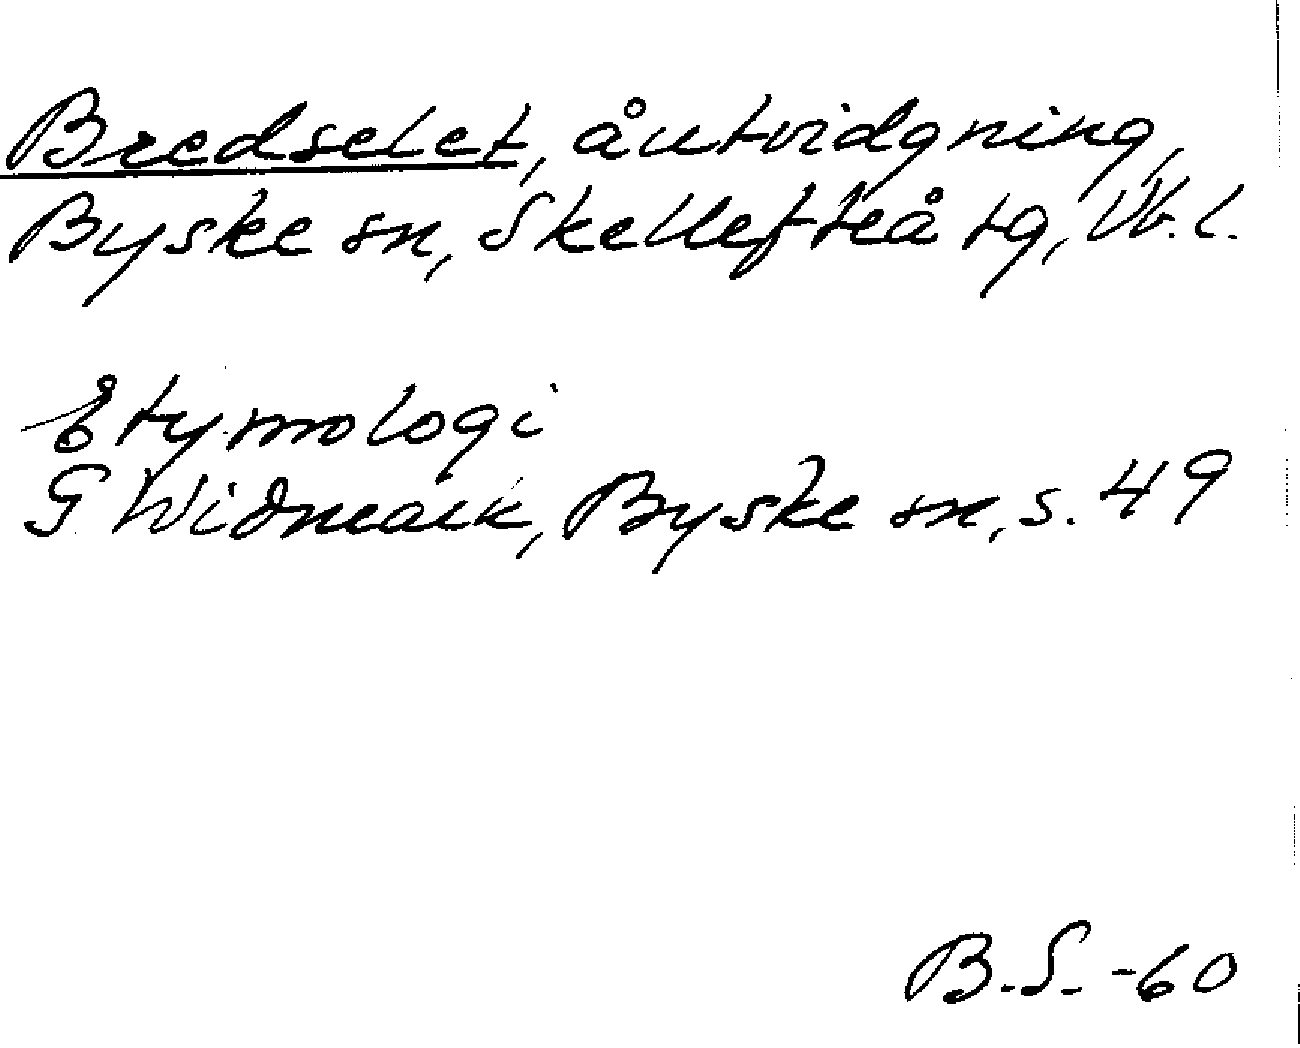 Bredselet, åutvidgning,
Byske sn, Skellefteå tg, Vb. l.
Etymologi
G Widmark, Byske sn, s. 49
B.S. -60